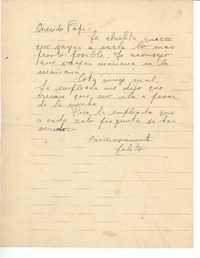 Querido Papá:
La abuelita quiere
que vayas a verla lo mas
pronto posible. Te aconsejo
que vayas mañana en la
mañana.
Está muy mal.
La empleada me dijo que
creian que no iba a pasar
de la noche
Dice la empleada que
a cada rato pregunta si has
venido.
Cariñosamente